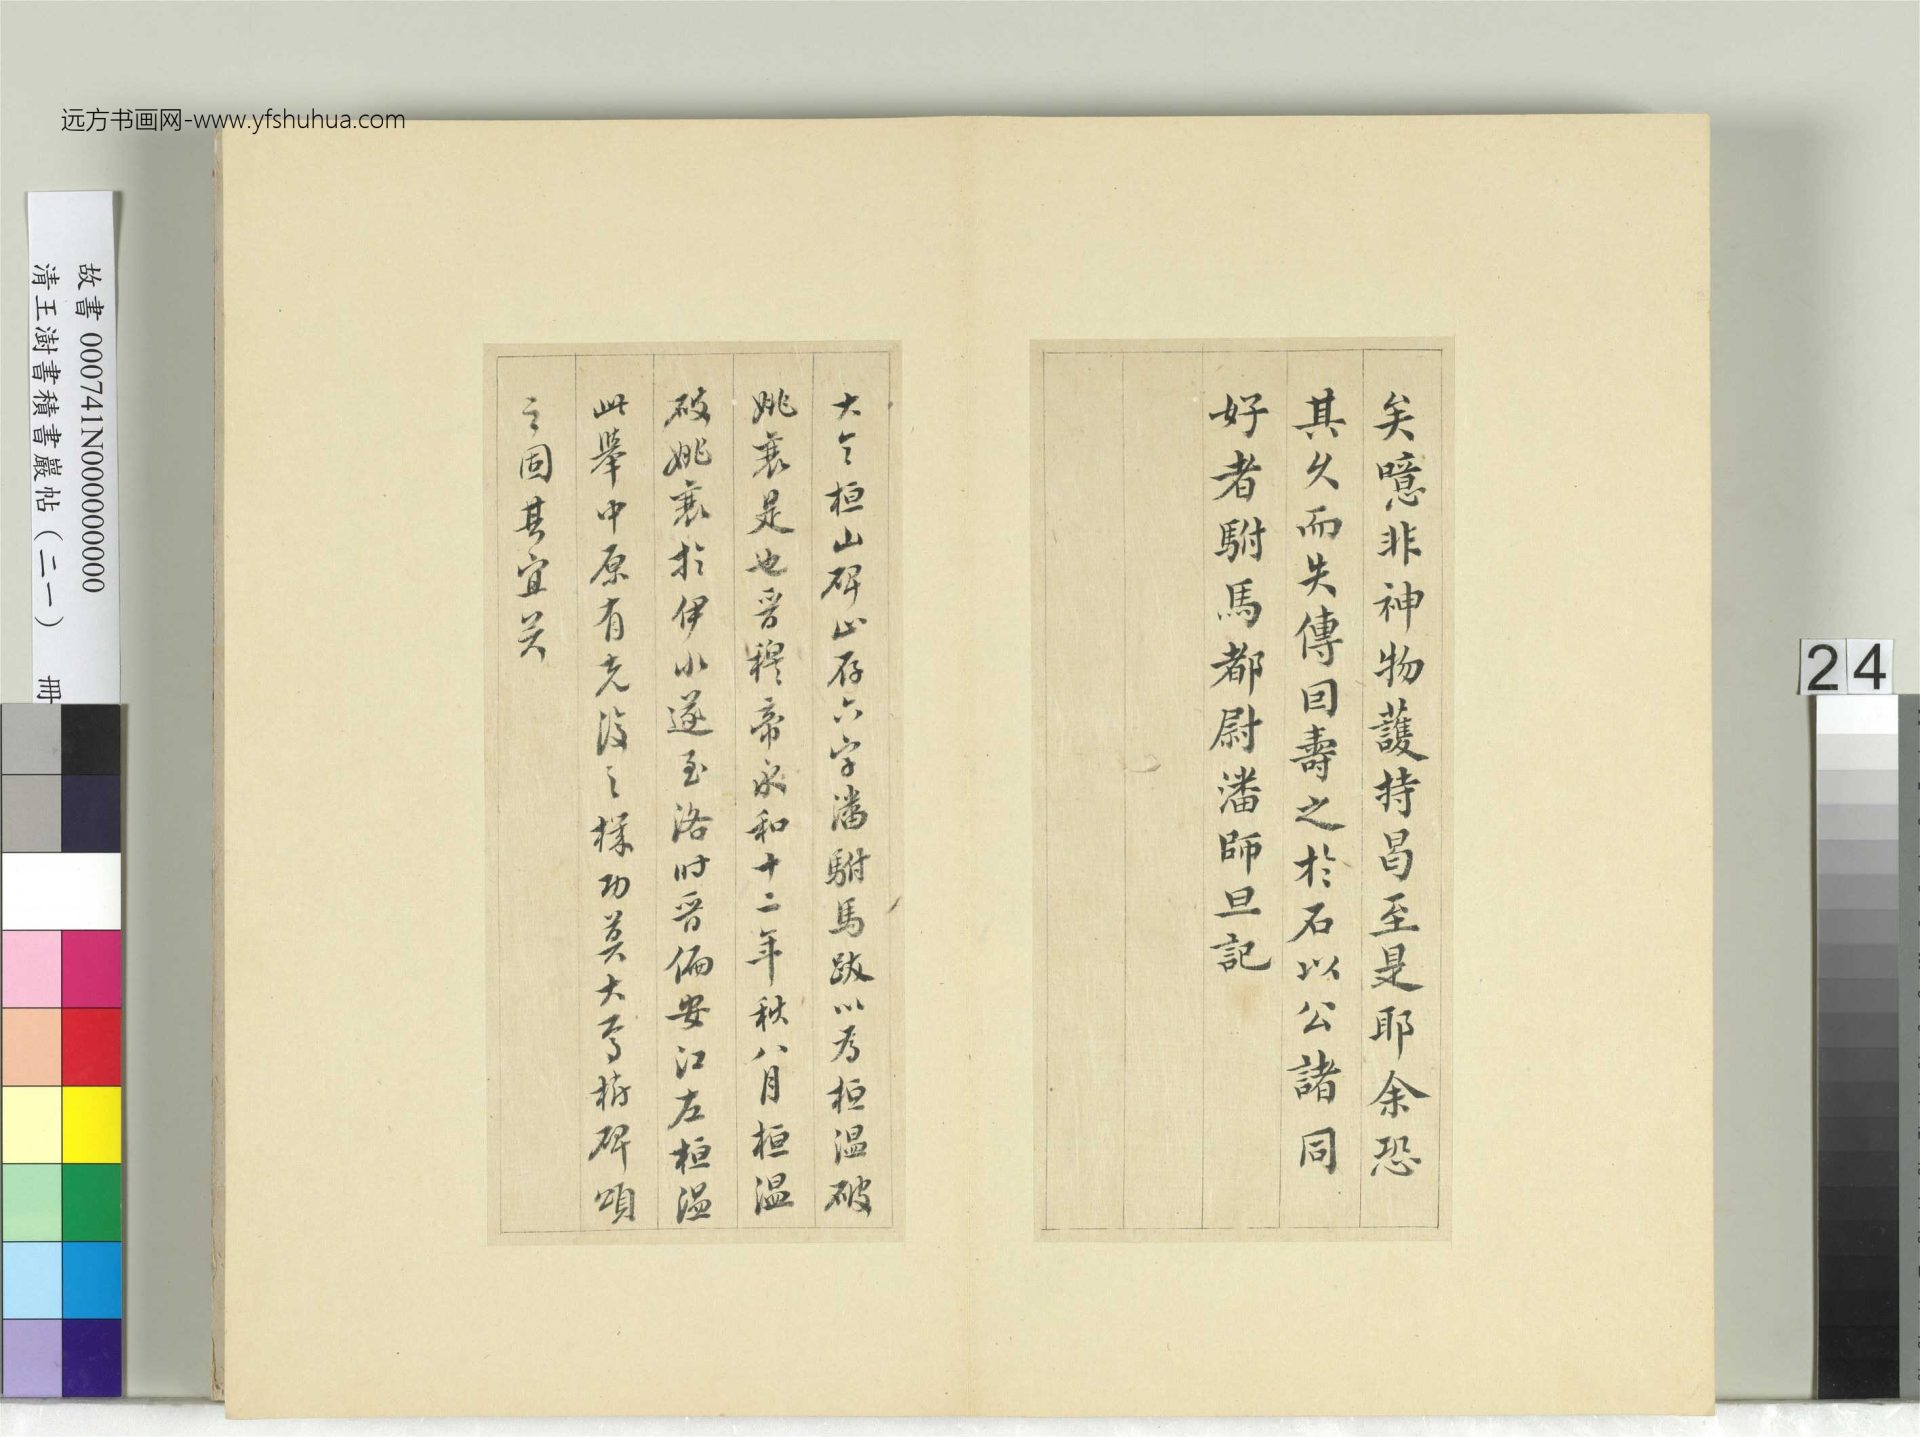 远方书画网-www.yfshuhua.com
故書 000741N000000000
清王澍書積書巖帖（二一） 冊
24
矣噫非神物護持曷至是耶余恐
其久而失傳因壽之於石以公諸同
好者駙馬都尉潘師旦記
大令桓山碑止存六字潘駙馬跋以为桓温破
姚襄是也晉穆帝永和十二年秋八月桓温
破姚襄於伊水遂至洛时晉偏安江左桓温
此舉中原有克復之樣功莫大焉樹碑頌
之固其宜矣